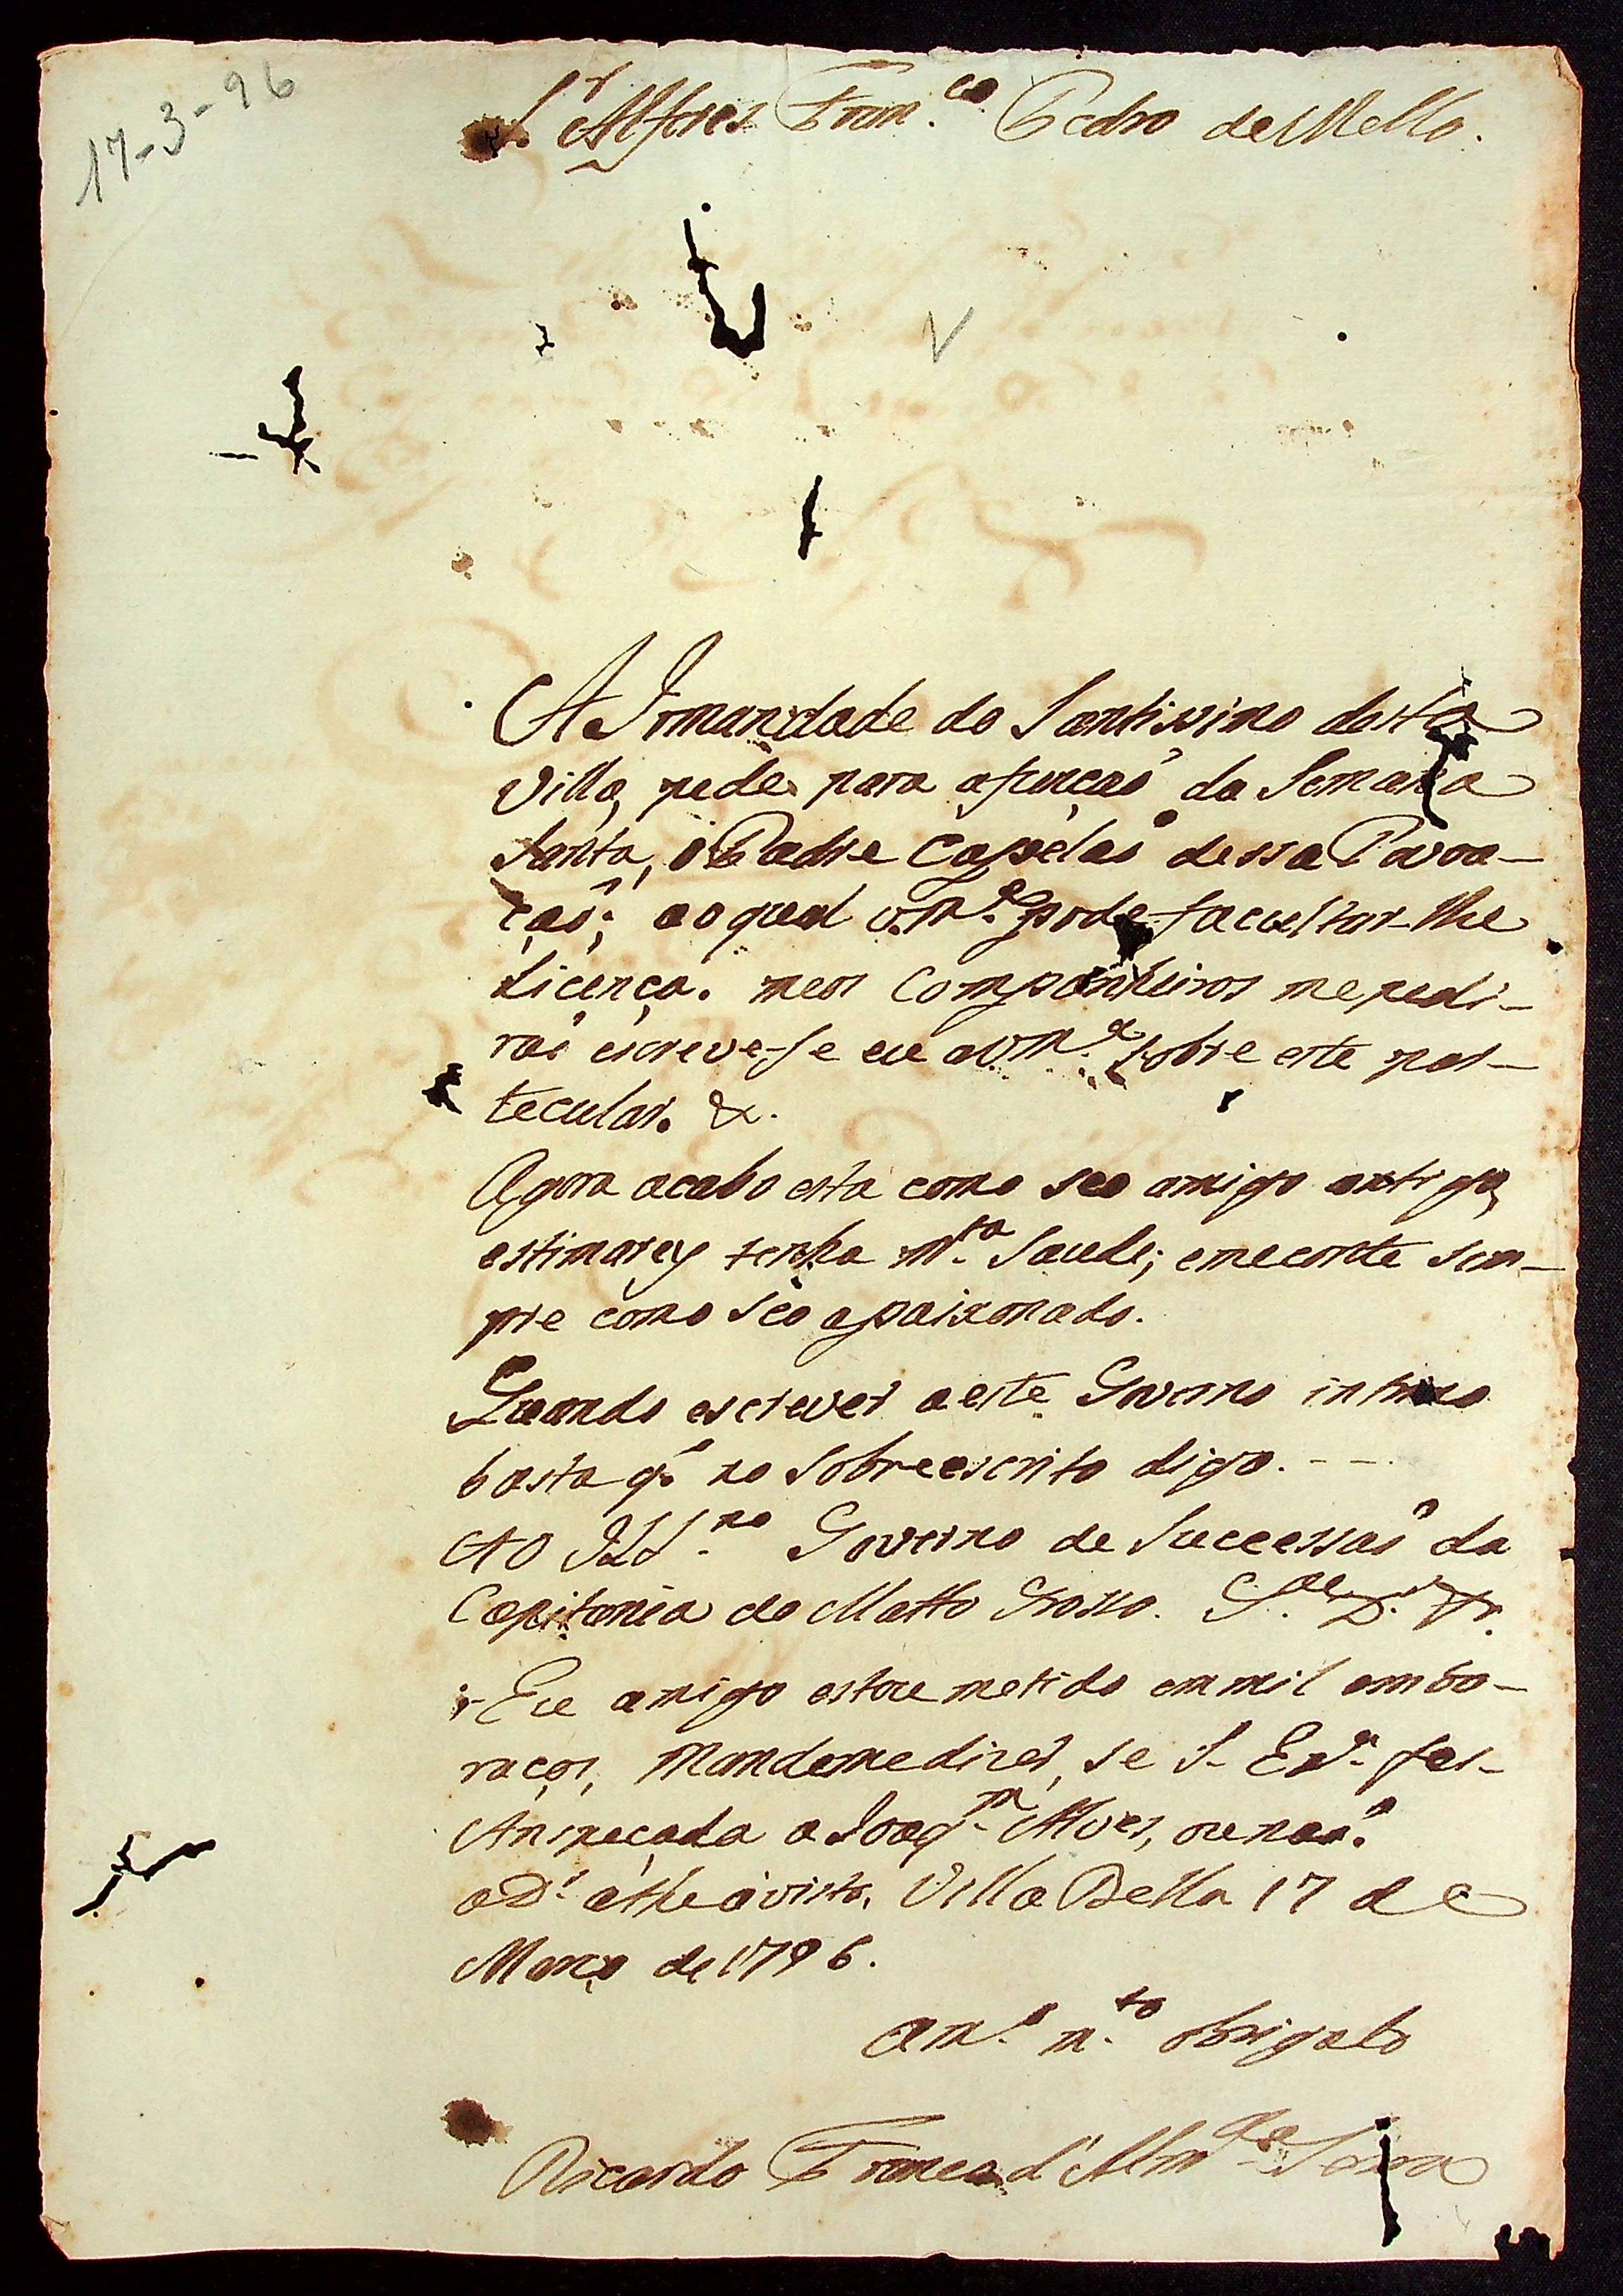 17-3-96
S.r Alferes Fran.co Pedro de Mello.
A Irmandade do Santissimo desta
Villa, pede para afunçaõ da Semana
Santa, o Padre Capelaõ dessa Povoa-
çaõ; ao qual v.M.ce pode facultar-lhe
Licença. meos Companheiros mepedi-
raõ escreve-se eu av.M.ce sobre este par-
tecular. &.
Agora acabo esta como seo amigo antigo,
estimarey tenha m.ta Saude; emeconte sem-
pre como seo apaixonado.
Quando escrever aeste Governo interino
basta q.e no sobreescrito diga. - - -
AO Ill.mo Governo de Successaõ da
Capitania do Matto Grosso.
Eu amigo estou metido emmil emba-
raços, Mandemedizer, se S. Ex.a fes
Anspeçada a Joaq.m Alves, ounaõ.
aD.s athe avista. Villa Bella 17 de
Março de 1796.
Am.o m.to obrigado
Ricardo Franco d'Alm.da Serra